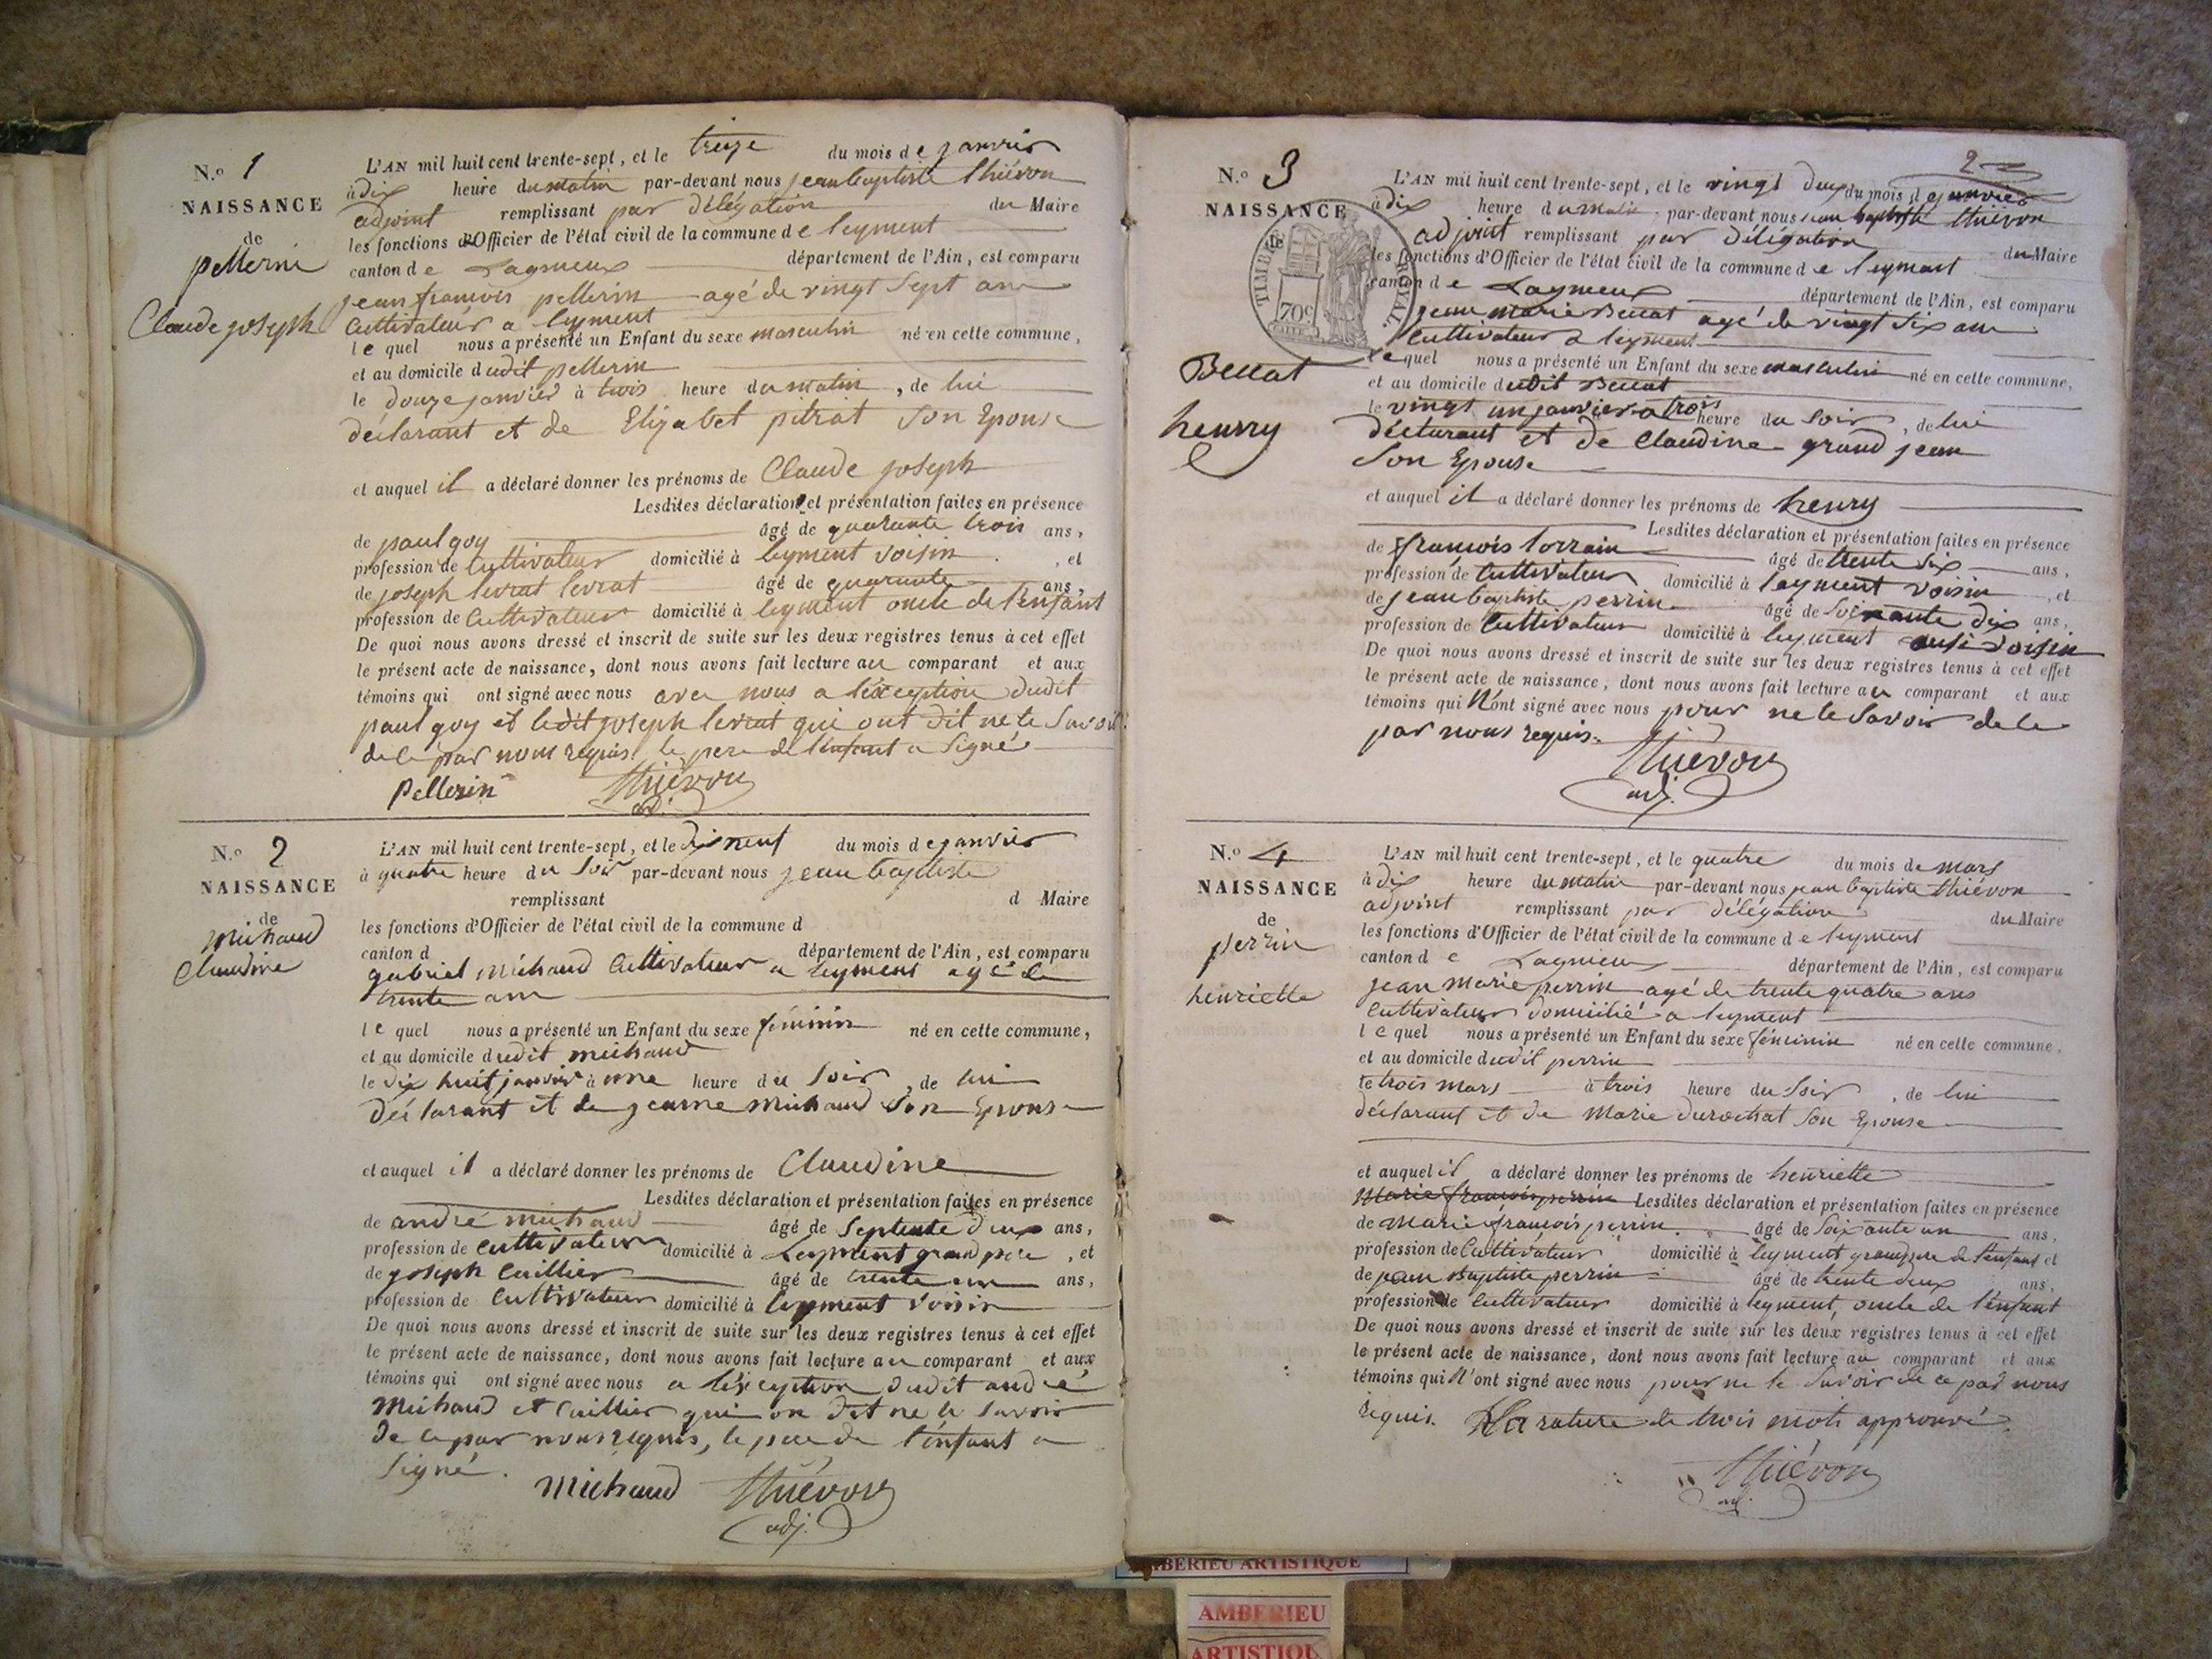 N.o 1
NAISSANCE
de
pellerin
Claude joseph
L'AN mil huit cent trente-sept, et le treize du mois de janvier
à dix heure du matin par-devant nous jean baptiste thiévon
adjoint remplissant par délégation du Maire
les fonctions d'Officier de l'état civil de la commune de leyment
canton de Lagnieux département de l'Ain, est comparu
jean francois pellerin agé de vingt sept ans
Cultivateur a leyment
lequel nous a présenté un Enfant du sexe masculin né en cette commune,
et au domicile dudit pellerin
le douze janvier à trois heure du matin, de lui
déclarant et de Elizabet pitrat Son Epouse
et auquel il a déclaré donner les prénoms de Claude joseph
Lesdites déclaration et présentation faites en présence
de paul goy âgé de quarante trois ans,
profession de Cultivateur domicilié à leyment voisin, et
de joseph levrat levrat âgé de quarante ans,
profession de Cultivateur domicilié à leyment oncle de l'enfant
De quoi nous avons dressé et inscrit de suite sur les deux registres tenus à cet effet
le présent acte de naissance, dont nous avons fait lecture au comparant et aux
témoins qui ont signé avec nous avec nous a l'éxception dudit
paul goy et ledit joseph levrat qui ont dit ne le Savoir
de ce par nous requis. le pere de l'enfant a Signé
Pellerin thiévon
adj.
N.o 2
NAISSANCE
de
michaud
Claudine
L'AN mil huit cent trente-sept, et le dixneuf du mois de janvier
à quatre heure du Soir par-devant nous jean baptiste
remplissant d Maire
les fonctions d'Officier de l'état civil de la commune d
canton d département de l'Ain, est comparu
gabriel michaud Cultivateur a leyment agé de
trente ans
lequel nous a présenté un Enfant du sexe féminin né en cette commune,
et au domicile dudit michaud
le dix huit janvier à une heure du Soir, de lui
déclarant et de jeanne michaud Son Epouse
et auquel il a déclaré donner les prénoms de Claudine
Lesdites déclaration et présentation faites en présence
de andré michaud âgé de Septente deux ans,
profession de Cultivateur domicilié à Leyment grand pere, et
de joseph Cuillier âgé de trente un ans,
profession de Cultivateur domicilié à leyment voisin
De quoi nous avons dressé et inscrit de suite sur les deux registres tenus à cet effet
le présent acte de naissance, dont nous avons fait lecture au comparant et aux
témoins qui ont signé avec nous a l'éxception dudit andré
Michaud et Cuillier qui on dit ne le Savoir
de ce par nous requis, le pere de l'enfant a
Signé.
Michaud thiévon
adj.
2
N.o 3
NAISSANCE
TIMBRE ROYAL
70c
henry
L'AN mil huit cent trente-sept, et le vingt deux du mois de janvier
à dix heure du matin par-devant nous jean baptiste thiévon
adjoint remplissant par délégation du Maire
les fonctions d'Officier de l'état civil de la commune de leyment
canton de Lagnieux département de l'Ain, est comparu
jean marie agé de vingt six ans
Cultivateur a leyment
lequel nous a présenté un Enfant du sexe masculin né en cette commune,
et au domicile dudit
le vingt un janvier a trois heure du Soir, de lui
déclarant et de Claudine grand jean
Son Epouse
et auquel il a déclaré donner les prénoms de henry
Lesdites déclaration et présentation faites en présence
de francois lorrain âgé de trente six ans,
profession de Cultivateur domicilié à leyment voisin, et
de jean baptiste perrin âgé de Soixante dix ans,
profession de Cultivateur domicilié à leyment ausi voisin
De quoi nous avons dressé et inscrit de suite sur les deux registres tenus à cet effet
le présent acte de naissance, dont nous avons fait lecture au comparant et aux
témoins qui N'ont signé avec nous pour ne le Savoir de ce
par nous requis.
thiévon
adj.
N.o 4
NAISSANCE
de
perrin
henriette
L'AN mil huit cent trente-sept, et le quatre du mois de mars
à dix heure du matin par-devant nous jean baptiste thiévon
adjoint remplissant par délégation du Maire
les fonctions d'Officier de l'état civil de la commune de leyment
canton de Lagnieux département de l'Ain, est comparu
jean marie perrin agé de trente quatre ans
Cultivateur domicilié a leyment
lequel nous a présenté un Enfant du sexe féminin né en cette commune,
et au domicile dudit perrin
le trois mars à trois heure du Soir, de lui
déclarant et de Marie durochat Son Epouse
et auquel il a déclaré donner les prénoms de henriette
Marie francois perrin Lesdites déclaration et présentation faites en présence
de Marie francois perrin âgé de Soixante un ans,
profession de Cultivateur domicilié à leyment grandpere de l'enfant et
de jean Baptiste perrin âgé de trente deux ans,
profession de Cultivateur domicilié à leyment, oncle de l'enfant
De quoi nous avons dressé et inscrit de suite sur les deux registres tenus à cet effet
le présent acte de naissance, dont nous avons fait lecture au comparant et aux
témoins qui N'ont signé avec nous pour ne le Savoir de ce par nous
requis. La rature de trois mots approuvé.
thiévon
adj.
AMBERIEU ARTISTIQUE
AMBERIEU
ARTISTIQU